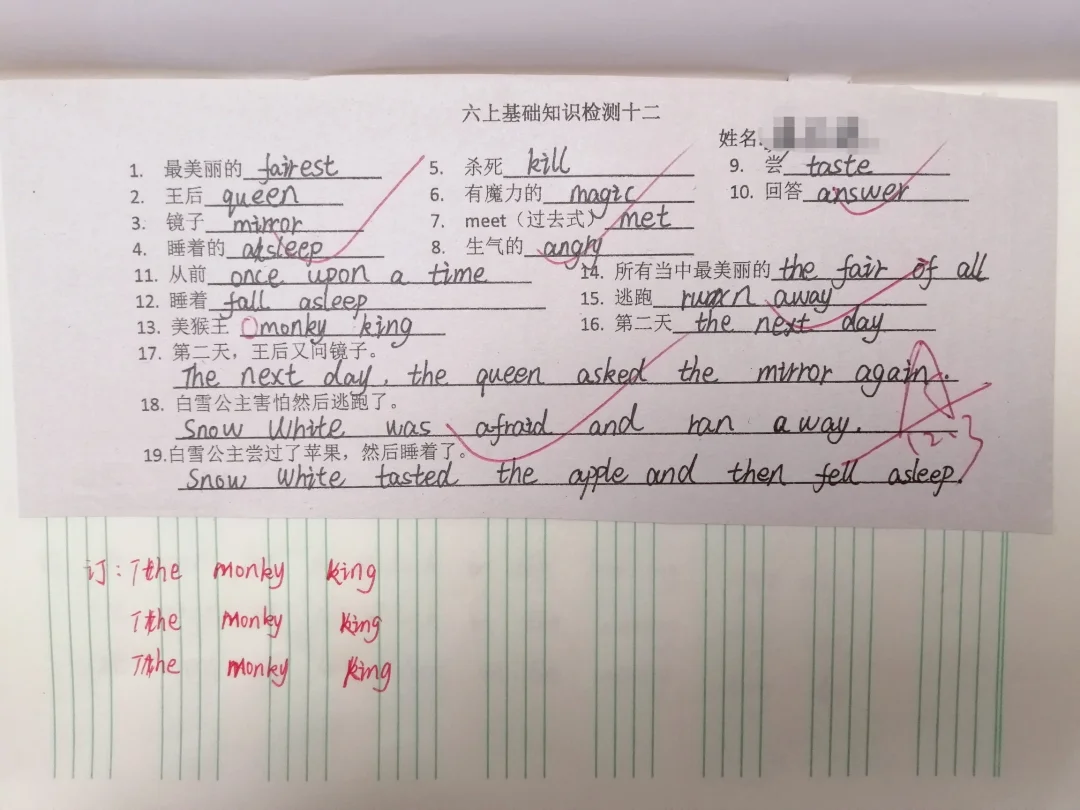 六上基础知识检测十二
姓名:
1. 最美丽的 fairest 5. 杀死 kill 9. 尝 taste
2. 王后 queen 6. 有魔力的 magic 10. 回答 answer
3. 镜子 mirror 7. meet（过去式） met
4. 睡着的 asleep 8. 生气的 angry
11. 从前 once upon a time 14. 所有当中最美丽的 the fair of all
12. 睡着 fall asleep 15. 逃跑 run away
13. 美猴王 monky king 16. 第二天 the next day
17. 第二天，王后又问镜子。
The next day, the queen asked the mirror again.
18. 白雪公主害怕然后逃跑了。
Snow White was afraid and ran away.
19.白雪公主尝过了苹果，然后睡着了。
Snow White tasted the apple and then fell asleep.
订: the monky king
the monky king
the monky king